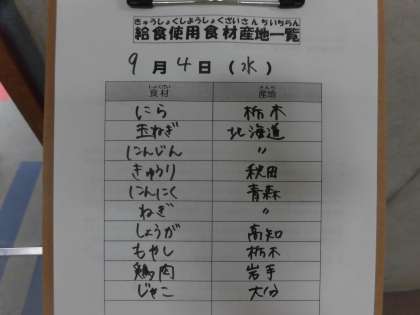 きゅうしょくしようしょくざいさんちいちらん
給食使用食材産地一覧
9月4日(水)
しょくざい さんち
食材 産地
にら 栃木
玉ねぎ 北海道
にんじん 〃
きゅうり 秋田
にんにく 青森
ねぎ 〃
しょうが 高知
もやし 栃木
鶏肉 岩手
じゃこ 大分